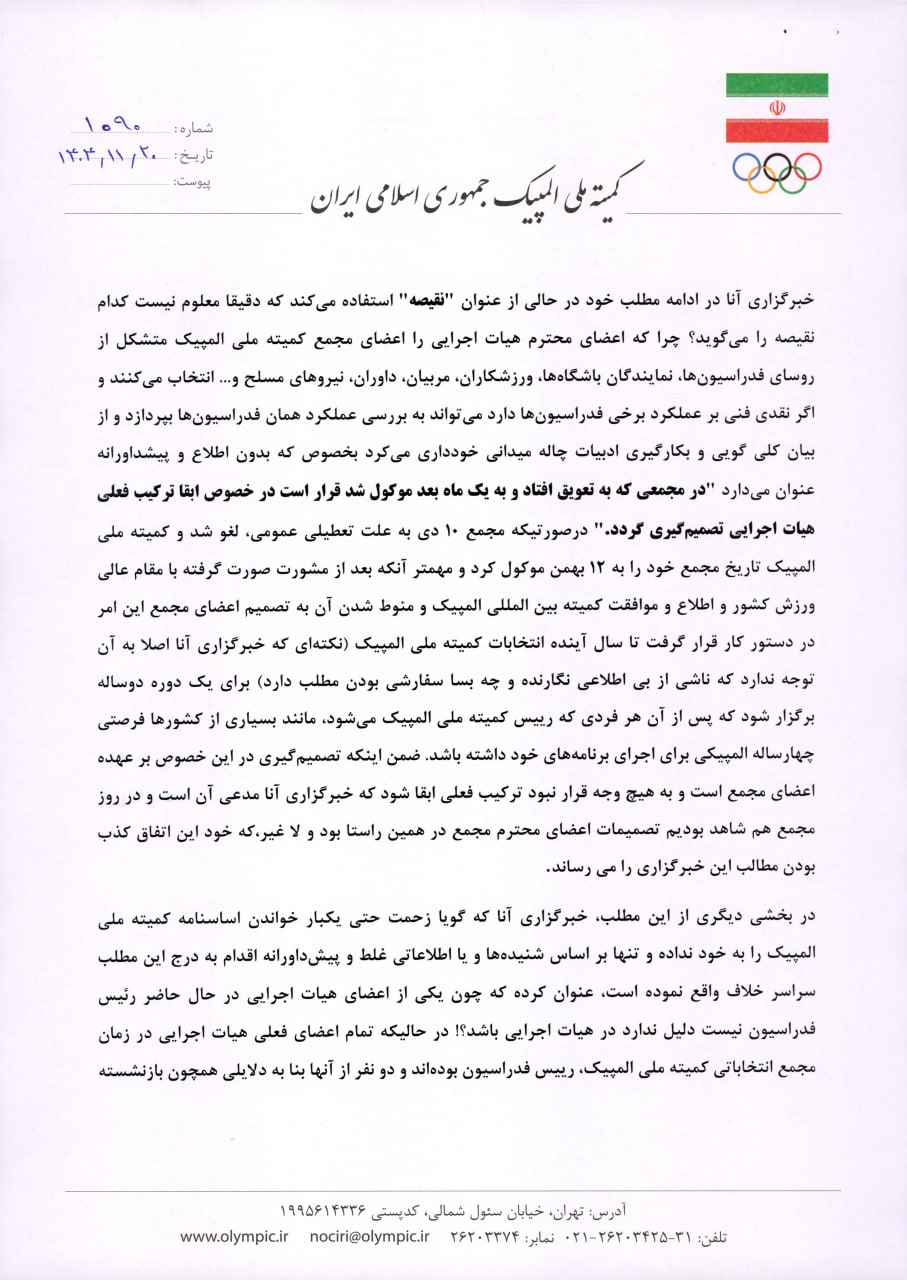 شماره: ۱۰۹۰
تاریخ: ۱۴۰۴/۱۱/۲۰
پیوست:
کمیته ملی المپیک جمهوری اسلامی ایران
خبرگزاری آنا در ادامه مطلب خود در حالی از عنوان "نقیصه" استفاده می‌کند که دقیقا معلوم نیست کدام
نقیصه را می‌گوید؟ چرا که اعضای محترم هیات اجرایی را اعضای مجمع کمیته ملی المپیک متشکل از
روسای فدراسیون‌ها، نمایندگان باشگاه‌ها، ورزشکاران، مربیان، داوران، نیروهای مسلح و... انتخاب می‌کنند و
اگر نقدی فنی بر عملکرد برخی فدراسیون‌ها دارد می‌تواند به بررسی عملکرد همان فدراسیون‌ها بپردازد و از
بیان کلی گویی و بکارگیری ادبیات چاله میدانی خودداری می‌کرد بخصوص که بدون اطلاع و پیشداورانه
عنوان می‌دارد "در مجمعی که به تعویق افتاد و به یک ماه بعد موکول شد قرار است در خصوص ابقا ترکیب فعلی
هیات اجرایی تصمیم‌گیری گردد." درصورتیکه مجمع ۱۰ دی به علت تعطیلی عمومی، لغو شد و کمیته ملی
المپیک تاریخ مجمع خود را به ۱۲ بهمن موکول کرد و مهمتر آنکه بعد از مشورت صورت گرفته با مقام عالی
ورزش کشور و اطلاع و موافقت کمیته بین المللی المپیک و منوط شدن آن به تصمیم اعضای مجمع این امر
در دستور کار قرار گرفت تا سال آینده انتخابات کمیته ملی المپیک (نکته‌ای که خبرگزاری آنا اصلا به آن
توجه ندارد که ناشی از بی اطلاعی نگارنده و چه بسا سفارشی بودن مطلب دارد) برای یک دوره دوساله
برگزار شود که پس از آن هر فردی که رییس کمیته ملی المپیک می‌شود، مانند بسیاری از کشورها فرصتی
چهارساله المپیکی برای اجرای برنامه‌های خود داشته باشد. ضمن اینکه تصمیم‌گیری در این خصوص بر عهده
اعضای مجمع است و به هیچ وجه قرار نبود ترکیب فعلی ابقا شود که خبرگزاری آنا مدعی آن است و در روز
مجمع هم شاهد بودیم تصمیمات اعضای محترم مجمع در همین راستا بود و لا غیر،که خود این اتفاق کذب
بودن مطالب این خبرگزاری را می رساند.
در بخشی دیگری از این مطلب، خبرگزاری آنا که گویا زحمت حتی یکبار خواندن اساسنامه کمیته ملی
المپیک را به خود نداده و تنها بر اساس شنیده‌ها و یا اطلاعاتی غلط و پیش‌داورانه اقدام به درج این مطلب
سراسر خلاف واقع نموده است، عنوان کرده که چون یکی از اعضای هیات اجرایی در حال حاضر رئیس
فدراسیون نیست دلیل ندارد در هیات اجرایی باشد؟! در حالیکه تمام اعضای فعلی هیات اجرایی در زمان
مجمع انتخاباتی کمیته ملی المپیک، رییس فدراسیون بوده‌اند و دو نفر از آنها بنا به دلایلی همچون بازنشسته
آدرس: تهران، خیابان سئول شمالی، کدپستی ۱۹۹۵۶۱۴۳۳۶
تلفن: ۳۱-۲۶۲۰۳۴۲۵-۰۲۱ نمابر: ۲۶۲۰۳۳۷۴ nociri@olympic.ir www.olympic.ir